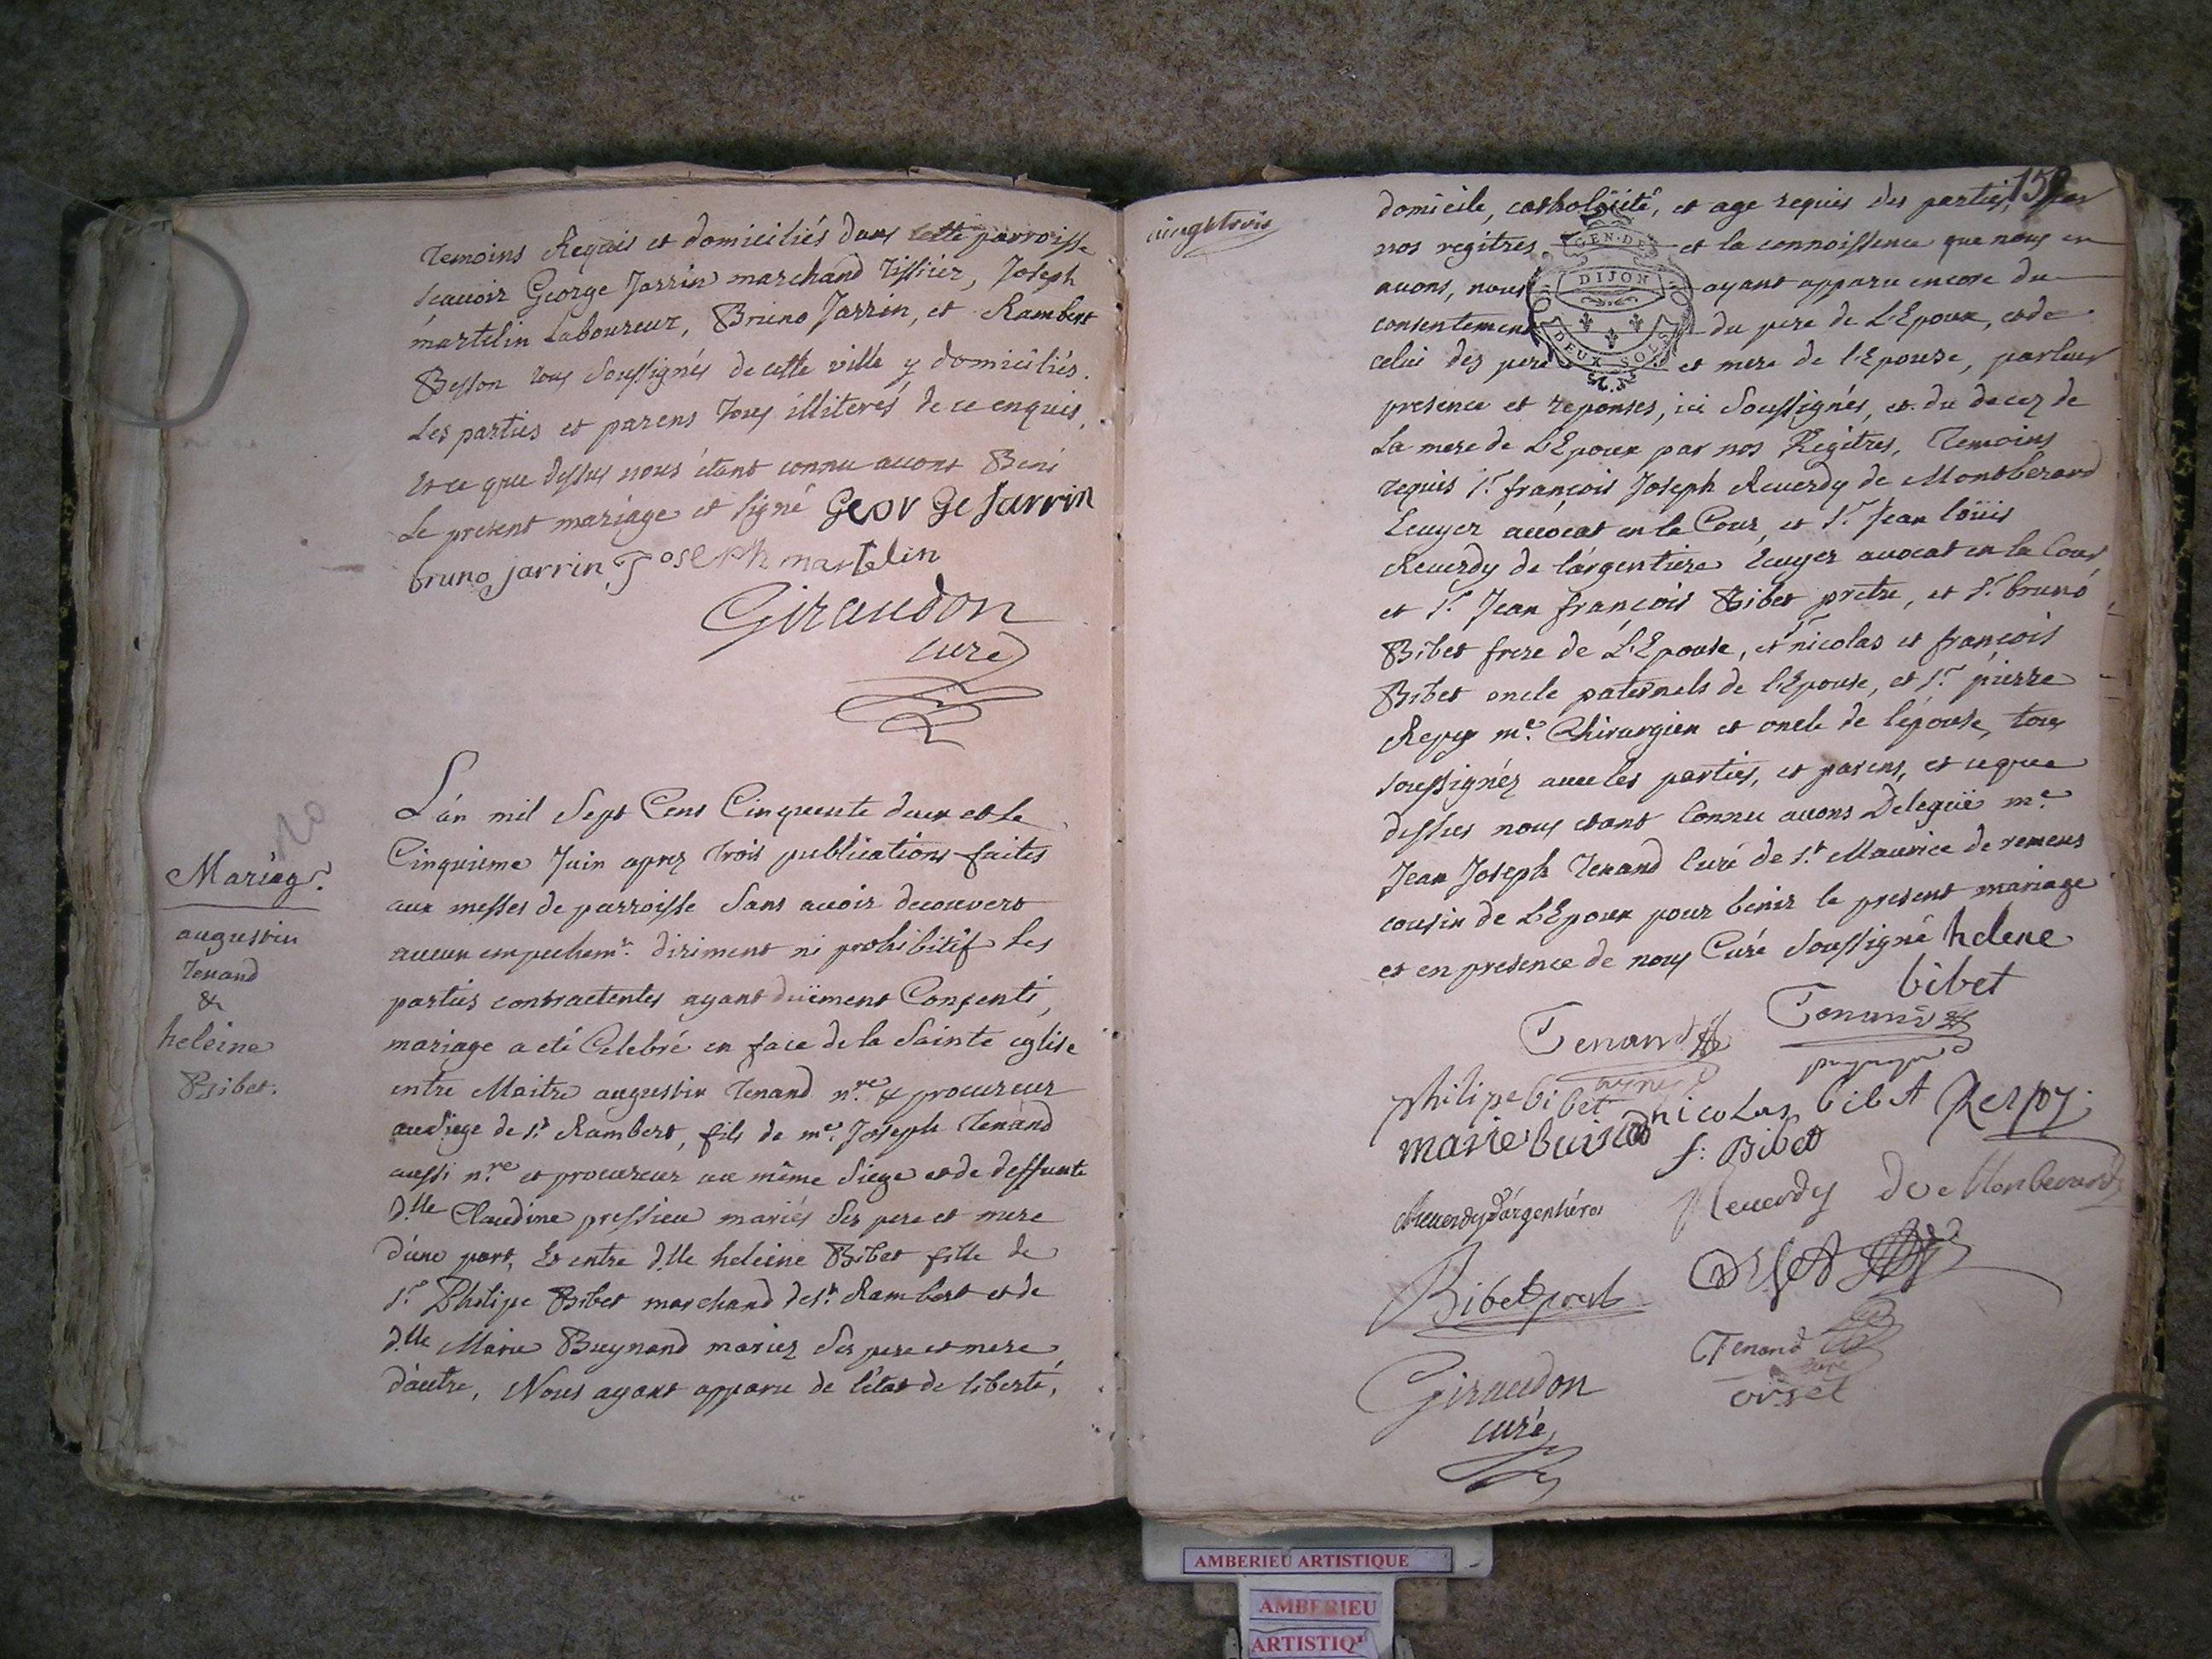 temoins Requis et domiciliés dans cette parroisse
sçauoir George Jarrin marchand tissier, Joseph
martelin Laboureur, Bruno Jarrin, et Rambert
Besson tous soussignés de cette ville y domiciliés.
Les parties et parens tous illiterés de ce enquis,
Et ce que dessus nous étant connu auons Beni
Le present mariage et signé George Jarrin
bruno jarrin Joseph martelin
Giraudon
curé
Mariag.
augustin
tenand
&
heleine
Bibet.
L'an mil Sept Cens Cinquente deux et le
Cinquieme Juin aprez trois publications faites
aux messes de parroisse Sans auoir decouvert
aucun empechemt. diriment ni prohibitif les
parties contractentes ayant duëment Consenti,
mariage a eté Celebré en face de la Sainte eglise
entre Maitre augustin Tenand nre. & procureur
au siege de st. Rambert, fils de me. Joseph Tenand
aussi nre. et procureur au même siege et de deffunte
dlle Claudine pressieu mariés ses pere et mere
d'une part, Et entre dlle heleine Bibet fille de
sr. Philipe Bibet marchand de st. Rambert et de
dlle Marie Buynand mariez ses pere et mere
d'autre, Nous ayant apparu de l'état de liberté,
vingt trois
domicile, catholicité, et age requis des parties, par
nos regitres et la connoissence que nous en
auons, nous ayant apparu encore du
consentement du pere de L'Epoux, et de
celui des pere et mere de l'Epouse, par leur
presence et reponses, ici Soussignés, et du decez de
La mere de L'Epoux par nos Regitres, Temoins
requis sr. françois Joseph Reuerdy de Montberard
Ecuyer auocat en la Cour, et sr. Jean loüis
Reuerdy de l'argentiere Ecuyer auocat en la Cour,
et sr. Jean françois Bibet pretre, et sr. bruno
Bibet frere de L'Epouse, et sr nicolas et françois
Bibet oncle paternels de l'Epouse, et sr. pierre
Repey me. Chirurgien et oncle de l'épouse, tous
soussignéz auec les parties, et parens, et ce que
dessus nous etant Connu auons Delegué me.
Jean Joseph Tenand Curé de st. Maurice de remens
cousin de L'Epoux pour benir le present mariage
et en presence de nous Curé Soussigné helene
bibet
Tenand Tenand
philipe bibet nicolas bibet
marie buinand f: Bibet
Reuerdy D'argentiere Reuerdy de Monberard
Bibet
Tenand
curé
Giraudon orset
curé
GEN. DE
DIJON
DEUX SOLS
AMBERIEU ARTISTIQUE
AMBERIEU
ARTISTIQ